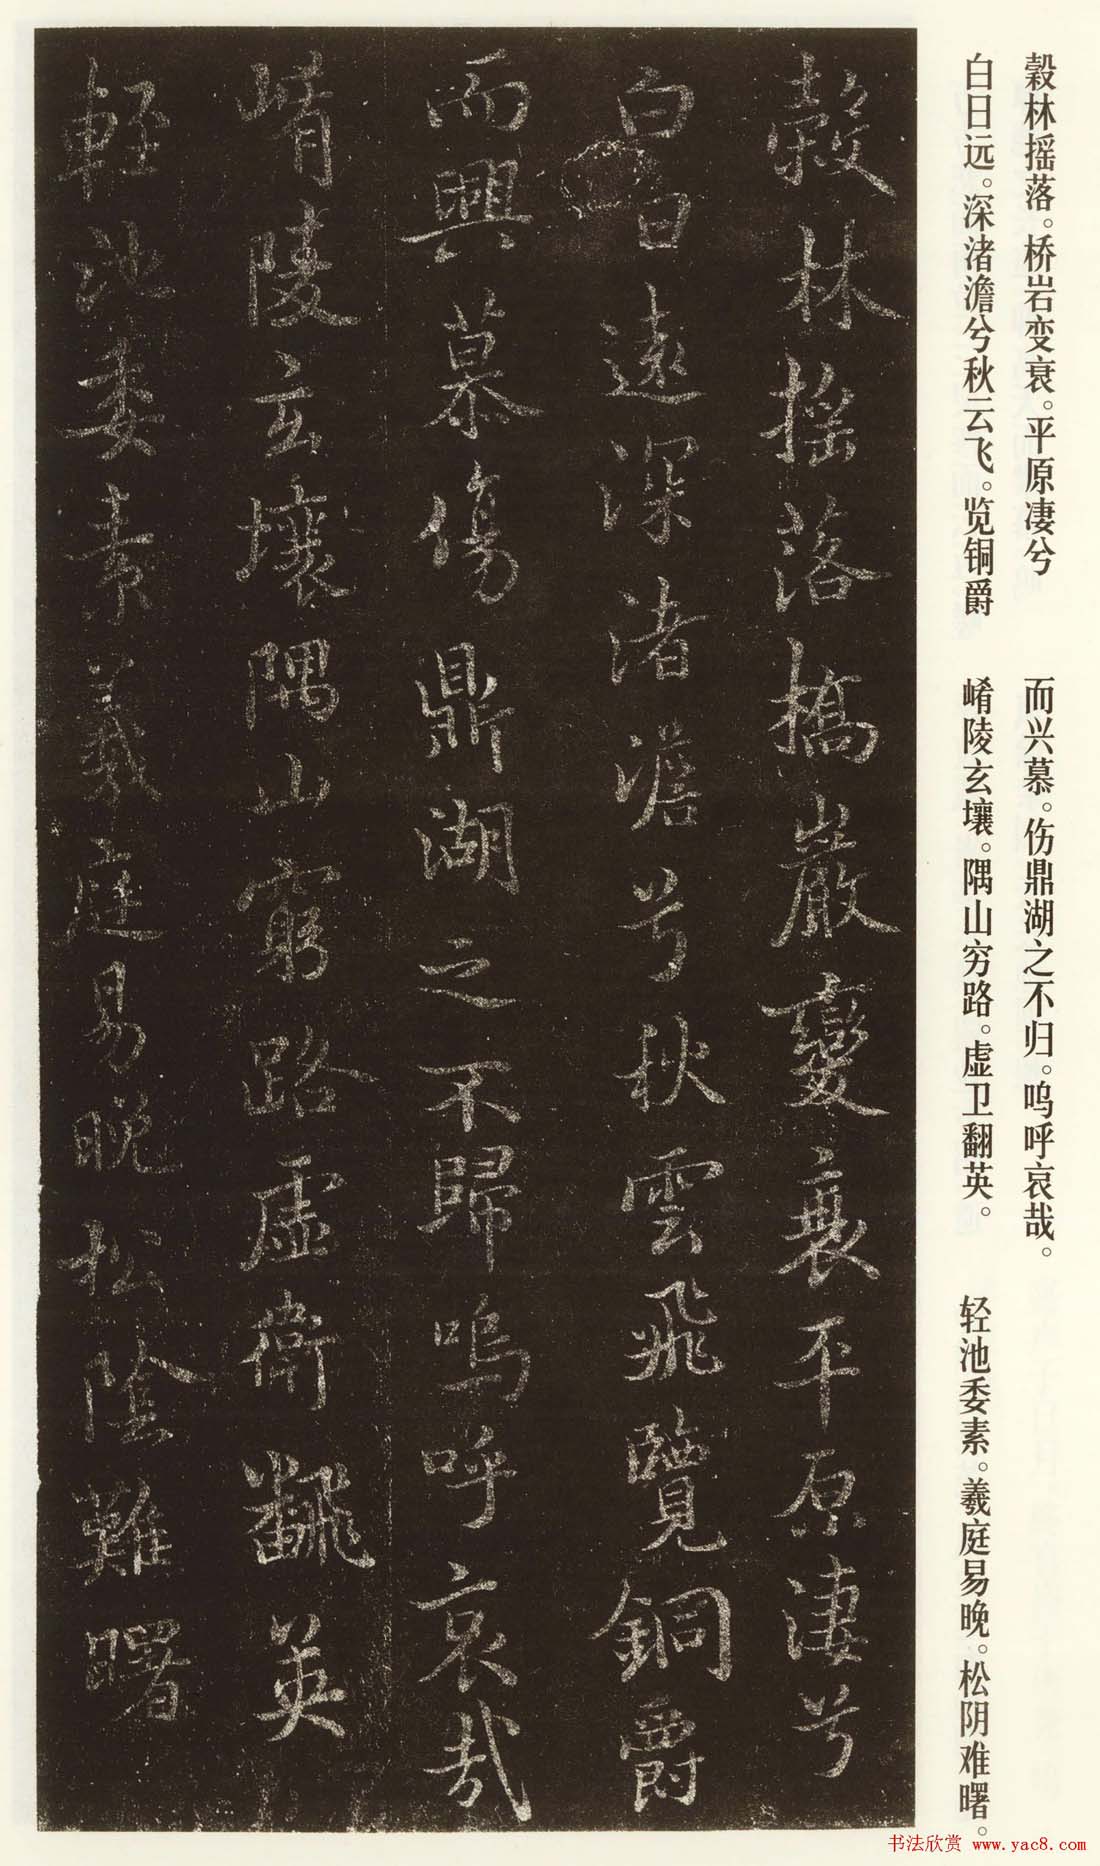 穀林摇落。桥岩变衰。平原凄兮
白日远。深渚澹兮秋云飞。览铜爵
而兴慕。伤鼎湖之不归。呜呼哀哉。
崤陵玄壤。隅山穷路。虚卫翻英。
轻池委素。羲庭易晚。松阴难曙。
穀林搖落橋巖變衰平原淒兮
白日遠深渚澹兮秋雲飛覽銅爵
而興慕傷鼎湖之不歸嗚呼哀哉
崤陵玄壤隅山窮路虛衛翻英
輕池委素羲庭易晚松陰難曙
书法欣赏 www.yac8.com